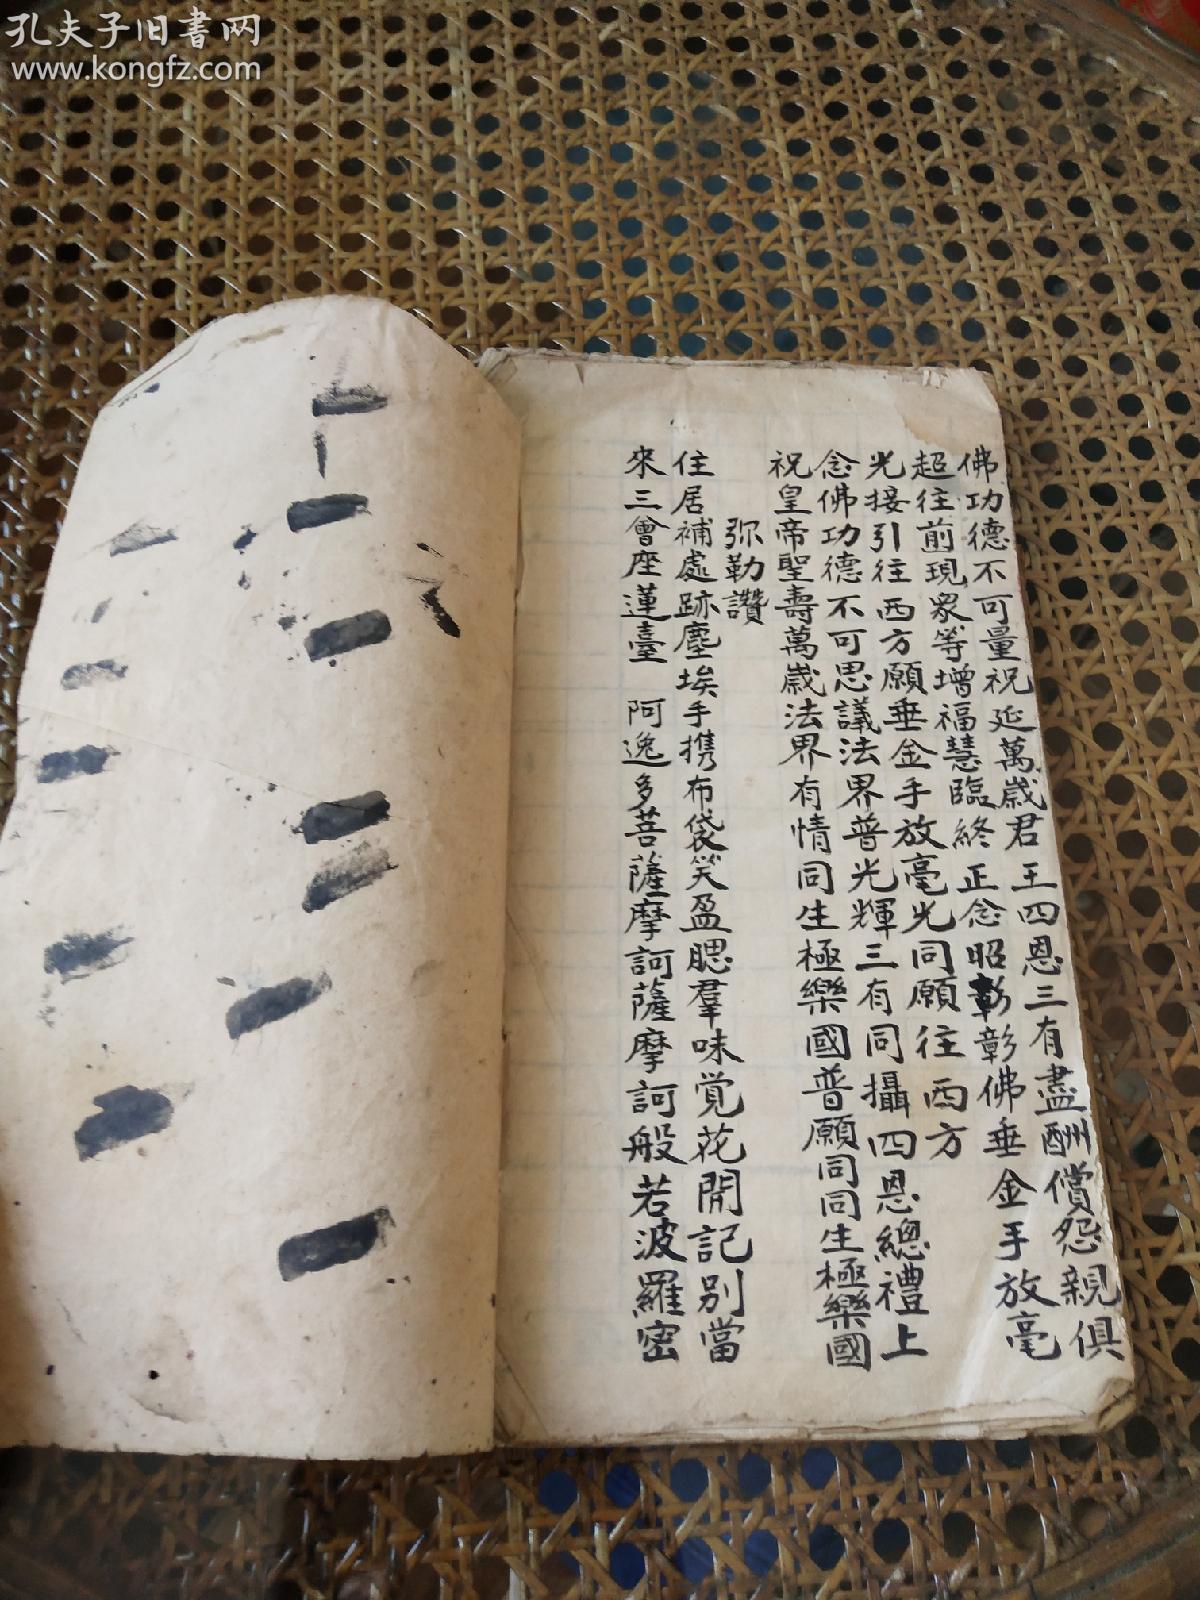 孔夫子旧書网
www.kongfz.com
佛功德不可量祝延萬歲君王四恩三有盡酬償怨親俱
超往前現眾等增福慧臨終正念昭彰彰佛垂金手放毫
光接引往西方願垂金手放毫光同願往西方
念佛功德不可思議法界普光輝三有同攝四恩總禮上
祝皇帝聖壽萬歲法界有情同生極樂國普願同同生極樂國
弥勒讚
住居補處跡塵埃手携布袋笑盈腮羣味覚花開記别當
來三會座蓮臺 阿逸多菩薩摩訶薩摩訶般若波羅密